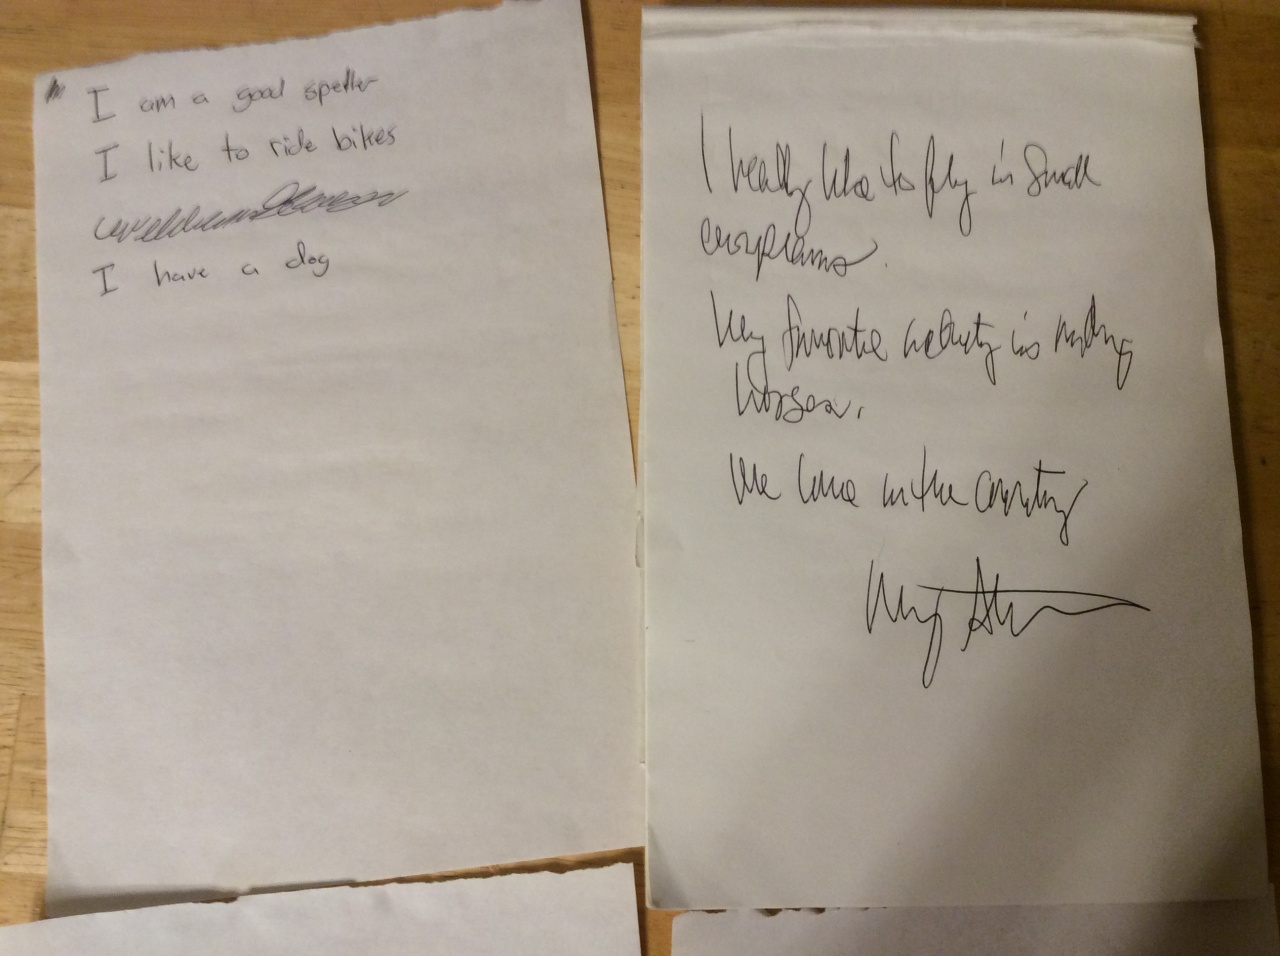 I am a good speller
I like to ride bikes
I have a dog
I really like to fly in small
airplanes.
My favorite activity is riding
horses.
We live in the country